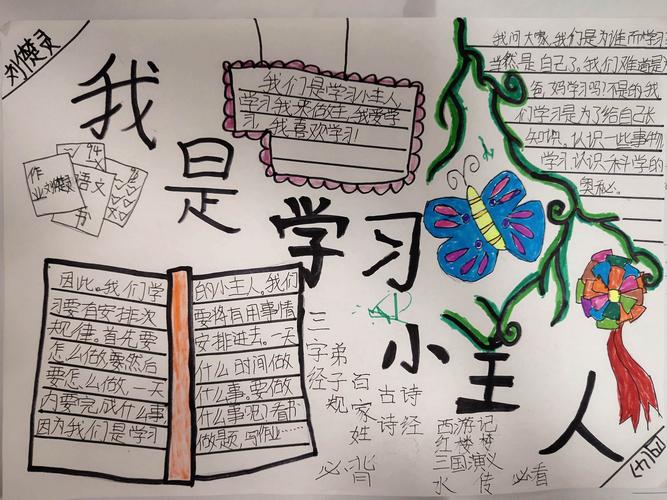 我是学习小主人
我们是学习小主人
学习我来做主,我要学
习,我喜欢学习!
我问大家,我们是为谁而学习
当然是自己了。我们难道是为
爸妈学习吗?不是的,我
们学习是为了给自己长
知识。认识一些事物
学习认识科学的
奥秘。
作
业
语文
书
因此。我们学
习要有安排次
规律。首先要
怎么做要然后
要怎么做,一天
内要完成什么事
因为我们是学习
的小主人。我们
要将有用事情
安排进去。一天
什么时间做
什么事。要做
什么事呢?看书
做题,写作业……
三字经
弟子规
百家姓
古诗
诗经
必背
西游记
红楼梦
三国演义
水传
必看